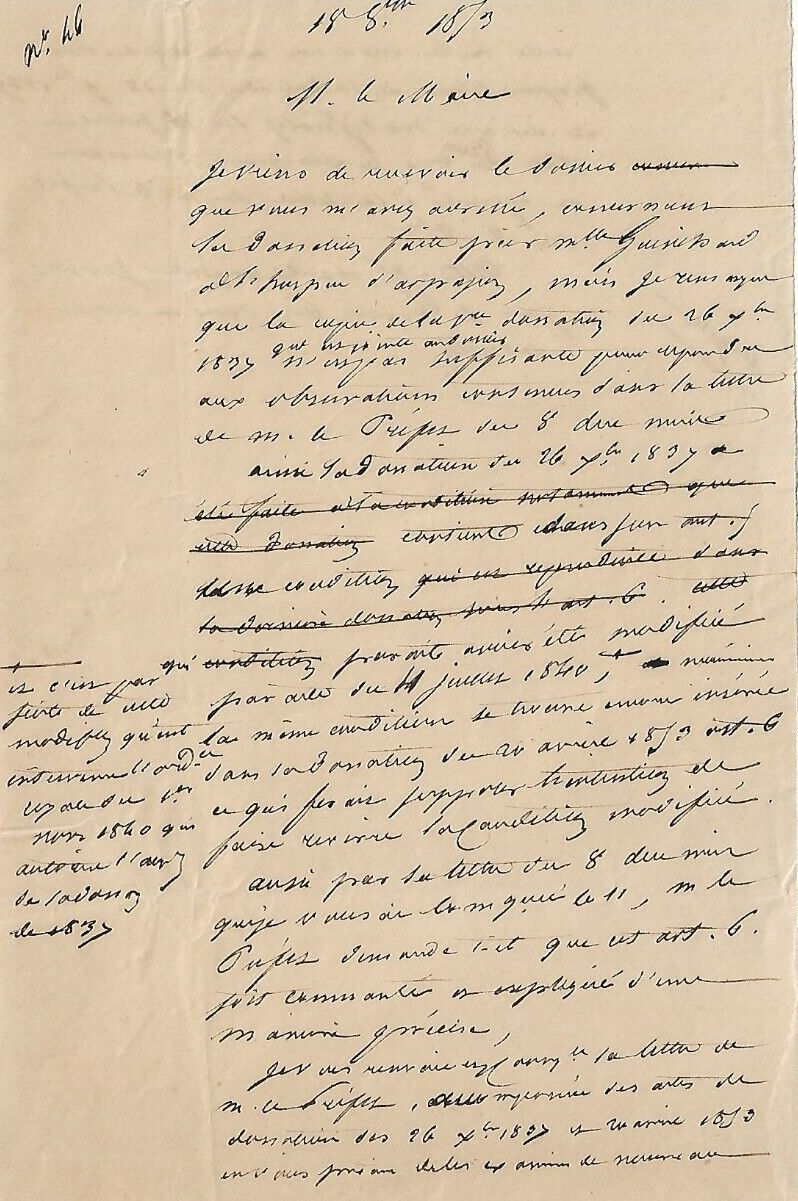 No. 46
18 8bre 1853
M. le Maire
Je viens de recevoir le dossier
que vous m'avez adressé, concernant
la donation faite par Mlle Guinchard
à l'hospice d'arpajon, mais je remarque
que la copie de la 1re donation du 26 xbre
que est jointe au dossier
1837 n'est pas suffisante pour répondre
aux observations contenues dans la lettre
de M. le Préfet du 8 du mois
ainsi la donation du 26 xbre 1837 a
été faite à la condition notamment que
cette donation contient dans son art. 5
une condition qui est reproduite dans
la dernière donation sous l'art. 6. cette
qui condition paraît avoir été modifiée
par acte du 11 juillet 1840, + néanmoins
la même condition se trouve encore insérée
dans la donation du 20 avril 1853 art. 6
ce qui ferait supposer l'intention de
faire revivre la condition modifiée.
+ et c'est par
suite de cette
modifion qu'est
intervenu l'ordce
royale du 1er
nov 1840 qui
autorise l'accep
de la donaon
de 1837
aussi par sa lettre du 8 du mois
que je vous ai communiqué le 11, M. le
Préfet demande t-il que cet art. 6.
soit commenté et expliqué d'une
manière précise,
Je vous renvoie la lettre de
M. le Préfet, accompagnée des actes de
donation des 26 xbre 1837 et 20 avril 1853
en vous priant de les examiner de nouveau